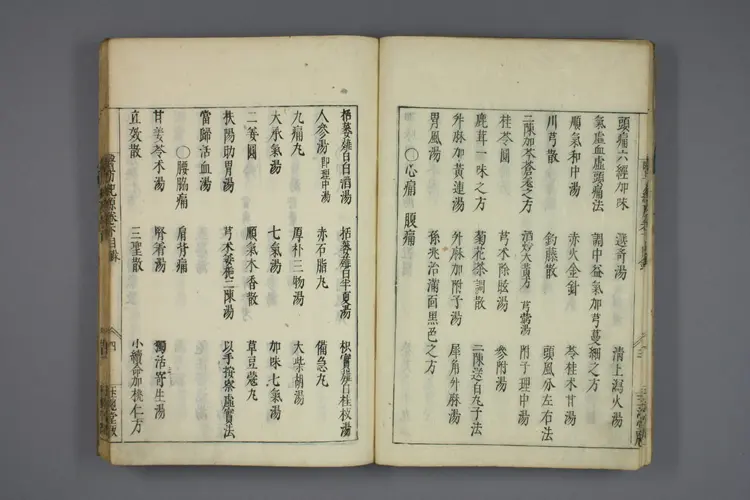 頭痛六經加味 選奇湯 清上瀉火湯
氣虛血虛頭痛法 調中益氣加芎蔓細之方
順氣和中湯 赤火金針 芩桂朮甘湯
川芎散 釣藤散 頭風分左右法
二陳加芩蒼羗之方 酒炒大黃方 芎 湯 附子理中湯
桂苓圓 芎朮除眩湯 參附湯
鹿茸一味之方 菊花茶調散 二陳送白丸子法
升麻加黃連湯 升麻加附子湯 犀角升麻湯
胃風湯 孫兆治滿面黑色之方
○心痛 腹痛
栝蔞薤白白酒湯 栝蔞薤白半夏湯 枳實薤白桂枝湯
人參湯 即理中湯 赤石脂丸 備急丸
九痛丸 厚朴三物湯 大柴胡湯
大承氣湯 七氣湯 加味七氣湯
二姜圓 順氣木香散 草豆蔻丸
扶陽助胃湯 芎朮姜梔二陳湯 以手按察虛實法
當歸活血湯
○腰脇痛 肩背痛
甘姜苓朮湯 腎着湯 獨活寄生湯
立效散 三聖散 小續命加桃仁方
目錄 四